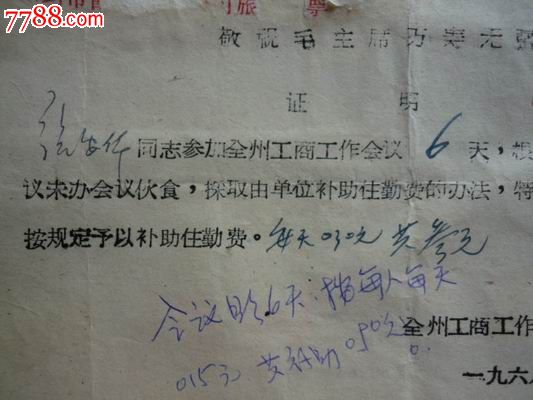 7788.com
票
敬祝毛主席万寿无疆
证 明
张安华同志参加全州工商工作会议 6 天，根
议未办会议伙食，採取由单位补助住勤费的办法，特
按规定予以补助住勤费。每天0.30元 共叁元
会议日 6天，按每人每天
0.15元，共补助0.90元。
全州工商工作
一九六八